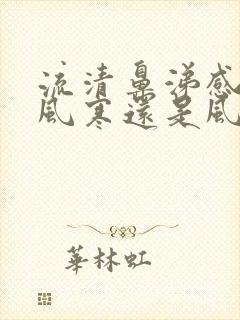 流清鼻涕感
風寒還是風
華林虹